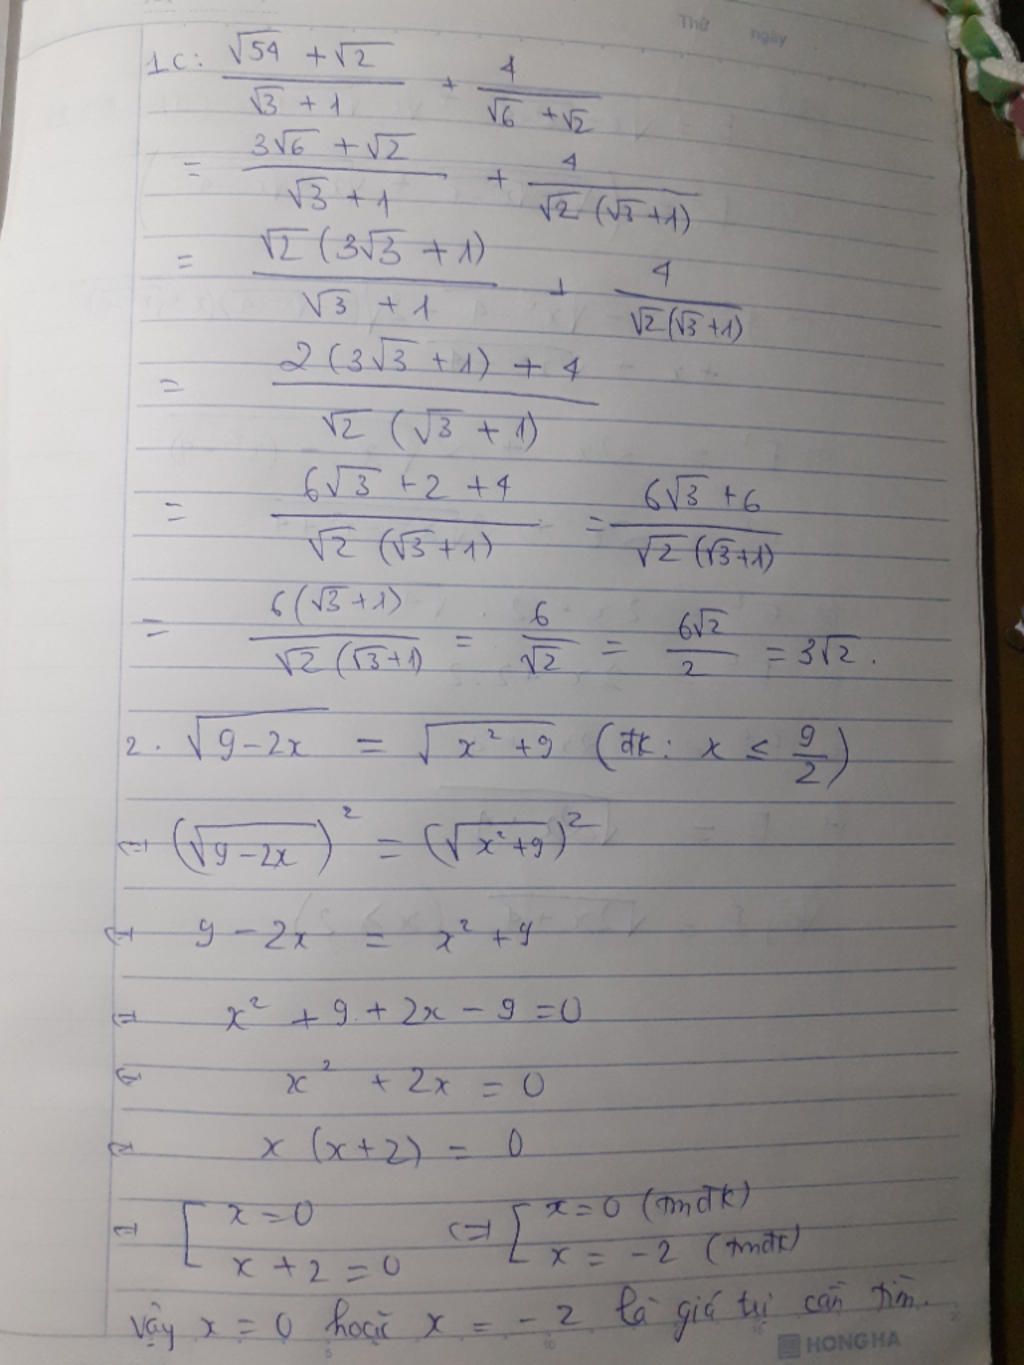 Thứ ngày
1c: (√54 + √2)/(√3 + 1) + 4/(√6 + √2)
= (3√6 + √2)/(√3 + 1) + 4/(√2 (√3+1))
= (√2 (3√3 + 1))/(√3 + 1) + 4/(√2 (√3+1))
= (2 (3√3 + 1) + 4)/(√2 (√3 + 1))
= (6√3 + 2 + 4)/(√2 (√3+1)) = (6√3 + 6)/(√2 (√3+1))
= (6(√3+1))/(√2 (√3+1)) = 6/√2 = 6√2/2 = 3√2.
2. √(9-2x) = √(x² + 9) (đk: x ≤ 9/2)
⇔ (√(9-2x))² = (√(x²+9))²
⇔ 9 - 2x = x² + 9
⇔ x² + 9 + 2x - 9 = 0
⇔ x² + 2x = 0
⇔ x (x+2) = 0
⇔ [ x = 0 ; x + 2 = 0 ⇔ [ x = 0 (tmđk) ; x = -2 (tmđk)
Vậy x = 0 hoặc x = -2 là giá trị cần tìm.
HONG HA